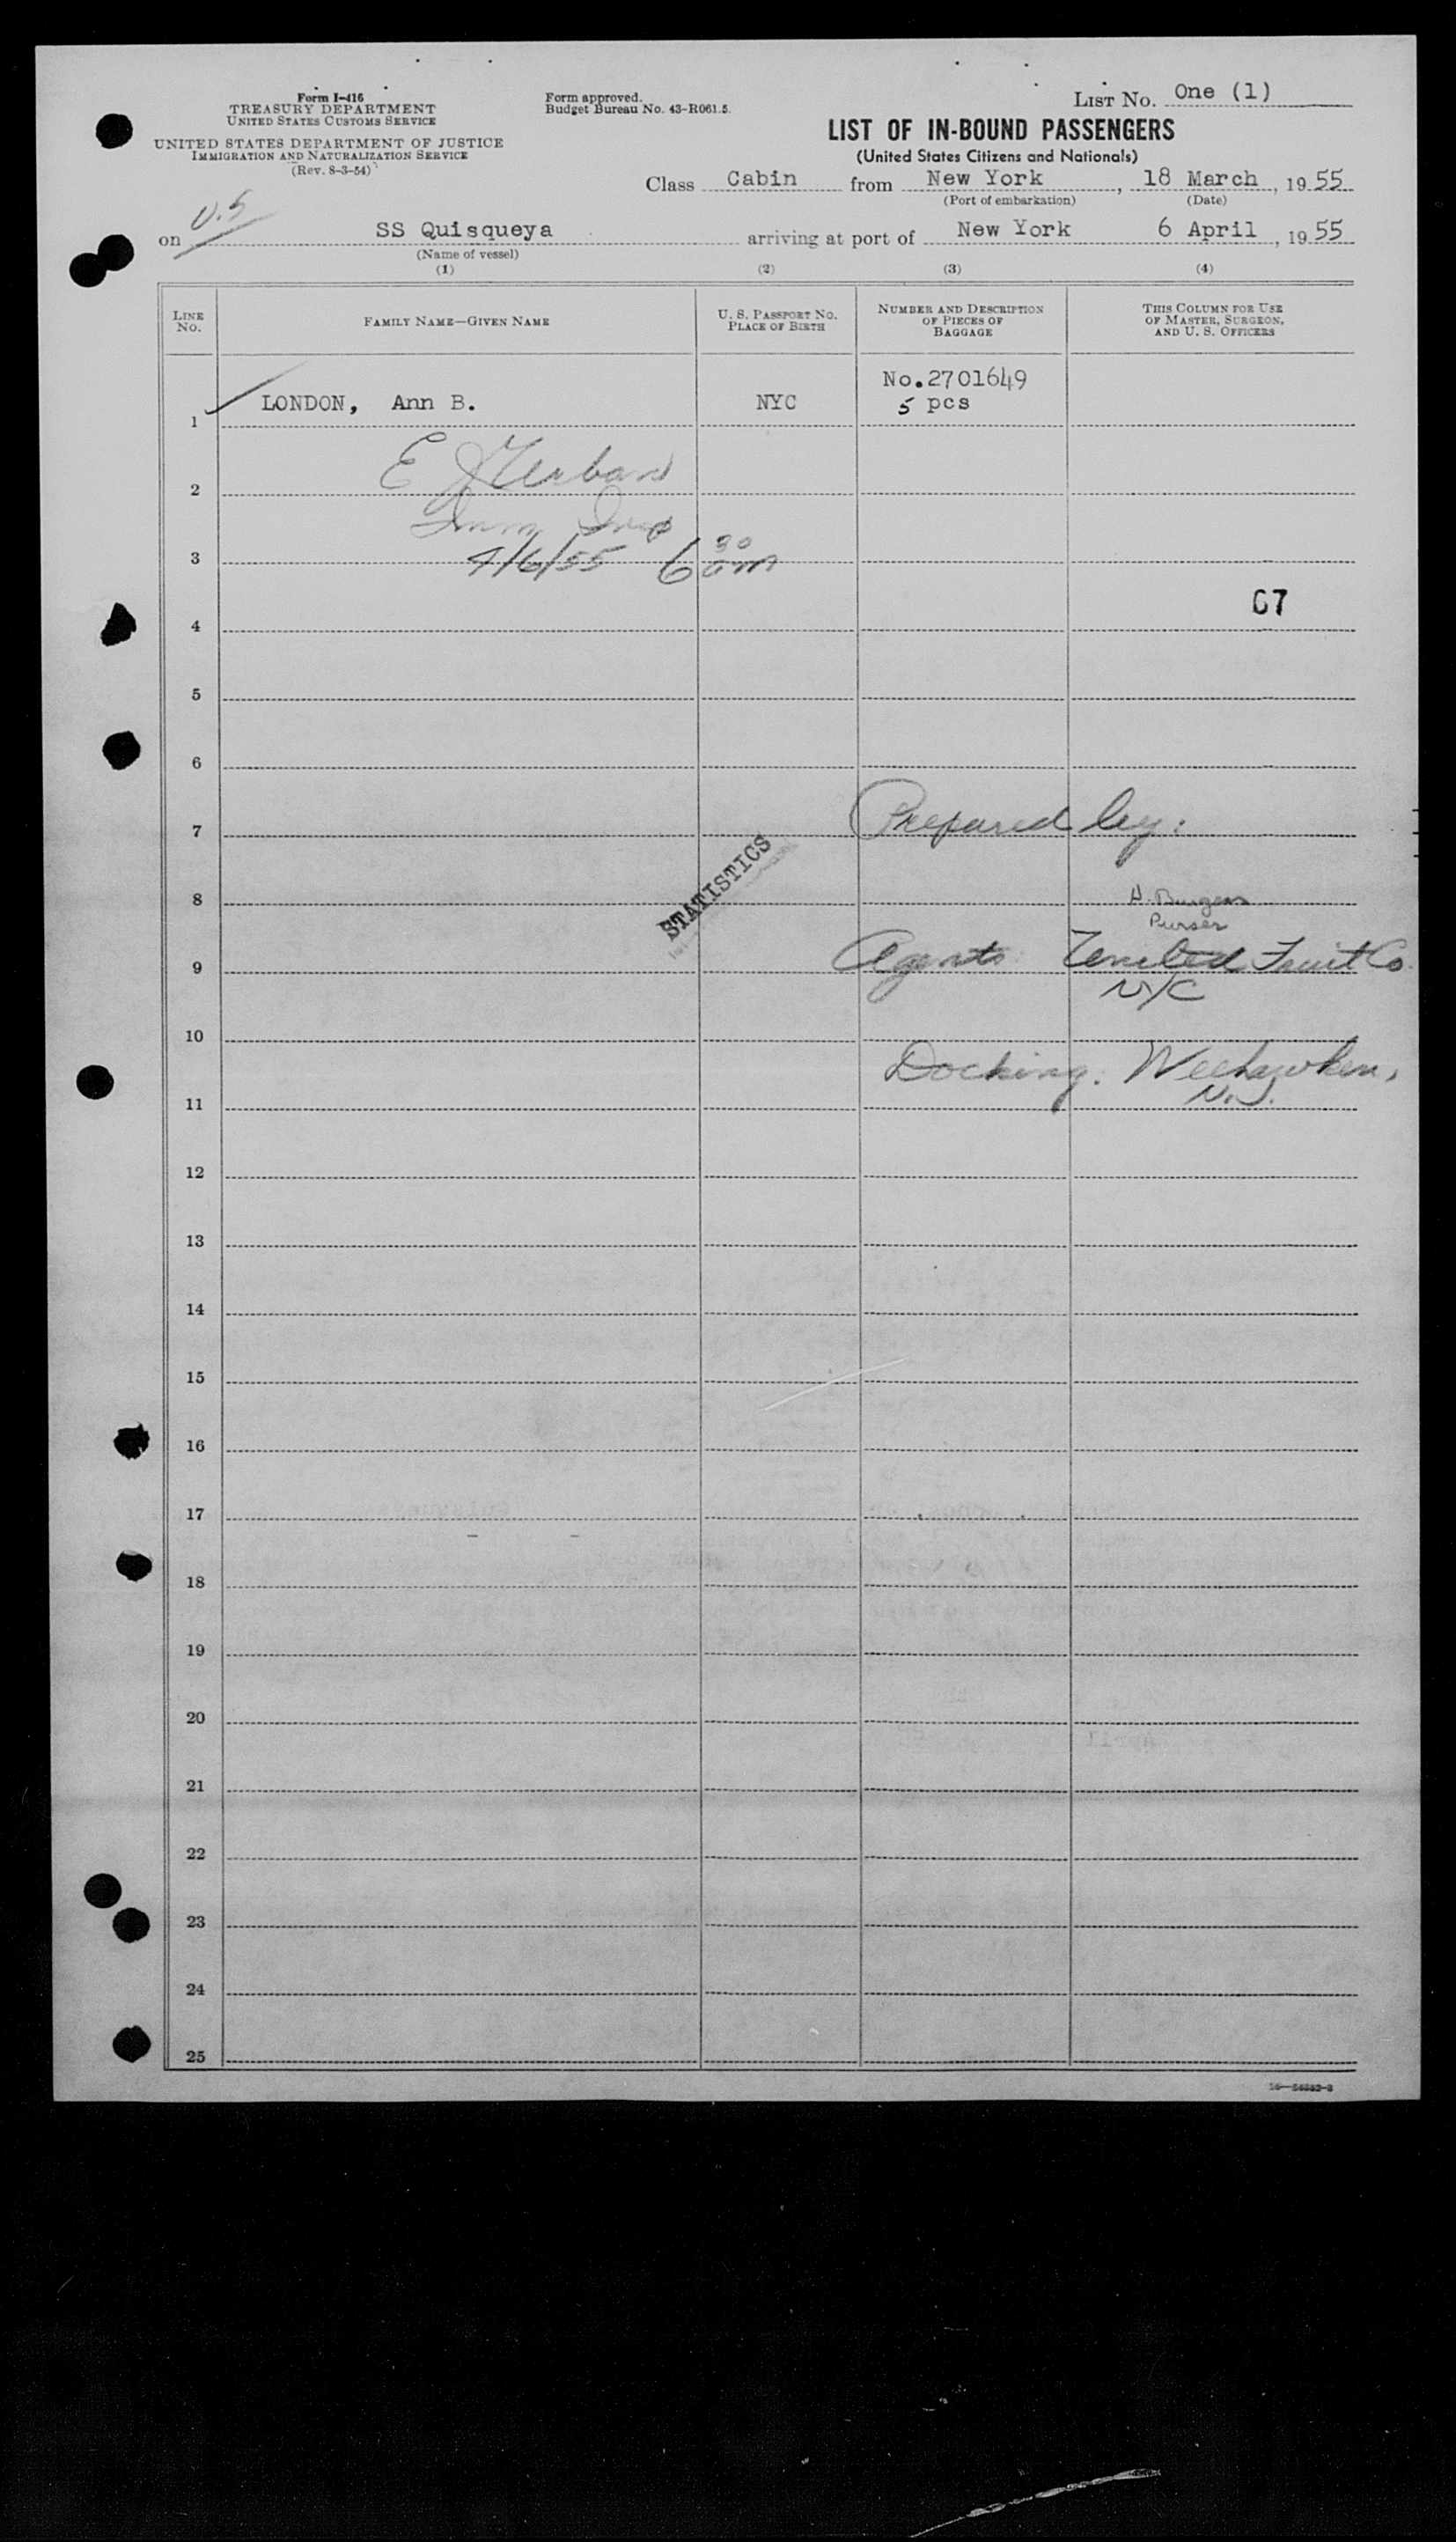 Form I-416
TREASURY DEPARTMENT
UNITED STATES CUSTOMS SERVICE
UNITED STATES DEPARTMENT OF JUSTICE
IMMIGRATION AND NATURALIZATION SERVICE
(Rev. 8-3-54)
Form approved.
Budget Bureau No. 43-R061.5.
LIST NO. One (1)
LIST OF IN-BOUND PASSENGERS
(United States Citizens and Nationals)
Class Cabin from New York, 18 March, 1955
(Port of embarkation) (Date)
U.S
on SS Quisqueya arriving at port of New York 6 April, 1955
(Name of vessel)
(1) (2) (3) (4)
LINE NO. FAMILY NAME—GIVEN NAME U. S. PASSPORT NO. PLACE OF BIRTH NUMBER AND DESCRIPTION OF PIECES OF BAGGAGE THIS COLUMN FOR USE OF MASTER, SURGEON, AND U. S. OFFICERS
No.2701649
1 LONDON, Ann B. NYC 5 pcs
E
2
Imm Insp
3 4/6/55 6 30 am
67
4
5
6
7 Prepared by:
STATISTICS
8 H. Burgess
Purser
9 Agents United Fruit Co.
NYC
10
Docking: Weehawken,
11 N.J.
12
13
14
15
16
17
18
19
20
21
22
23
24
25